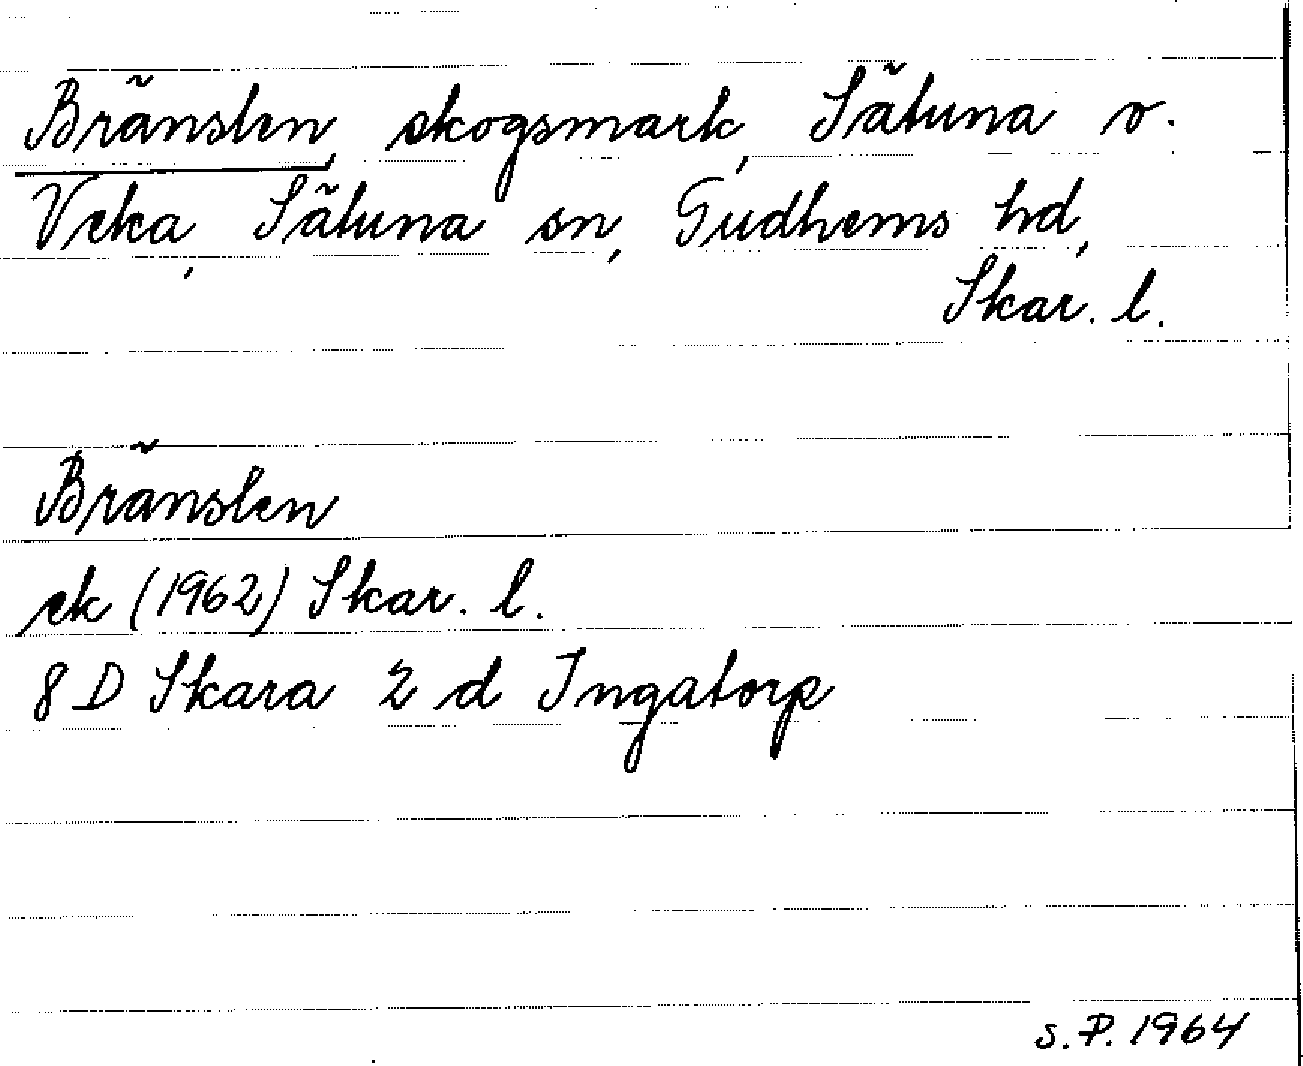 Bränslen, skogsmark, Sätuna o.
Veka, Sätuna sn, Gudhems hd,
Skar. l.
Bränslen
ek (1962) Skar. l.
8 D Skara 2 d Ingatorp
S.P. 1964